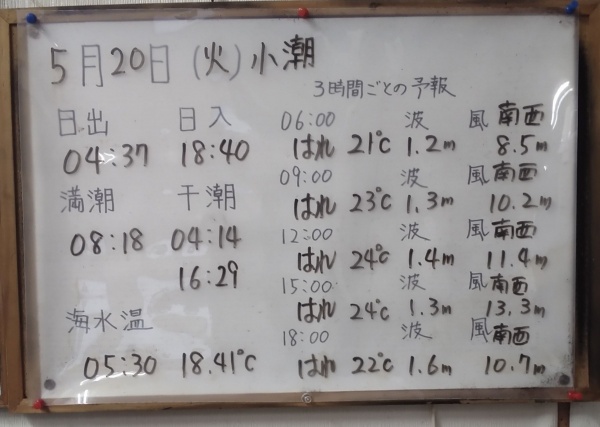 5月20日(火)小潮
日出 日入
04:37 18:40
満潮 干潮
08:18 04:14
16:29
海水温
05:30 18.41℃
3時間ごとの予報
06:00 波 風 南西
はれ 21℃ 1.2m 8.5m
09:00 波 風 南西
はれ 23℃ 1.3m 10.2m
12:00 波 風 南西
はれ 24℃ 1.4m 11.4m
15:00 波 風 南西
はれ 24℃ 1.3m 13.3m
18:00 波 風 南西
はれ 22℃ 1.6m 10.7m